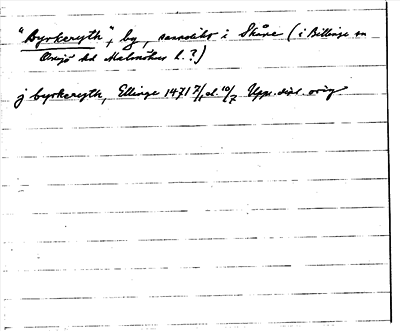 "Byrkeryth", by, sannolikt i Skåne (i Billinge sn
Onsjö hd Malmöhus l.?)
j byrkeryth, Ellinge 1471 7/1 d. 10/7 Upps. dipl. orig.